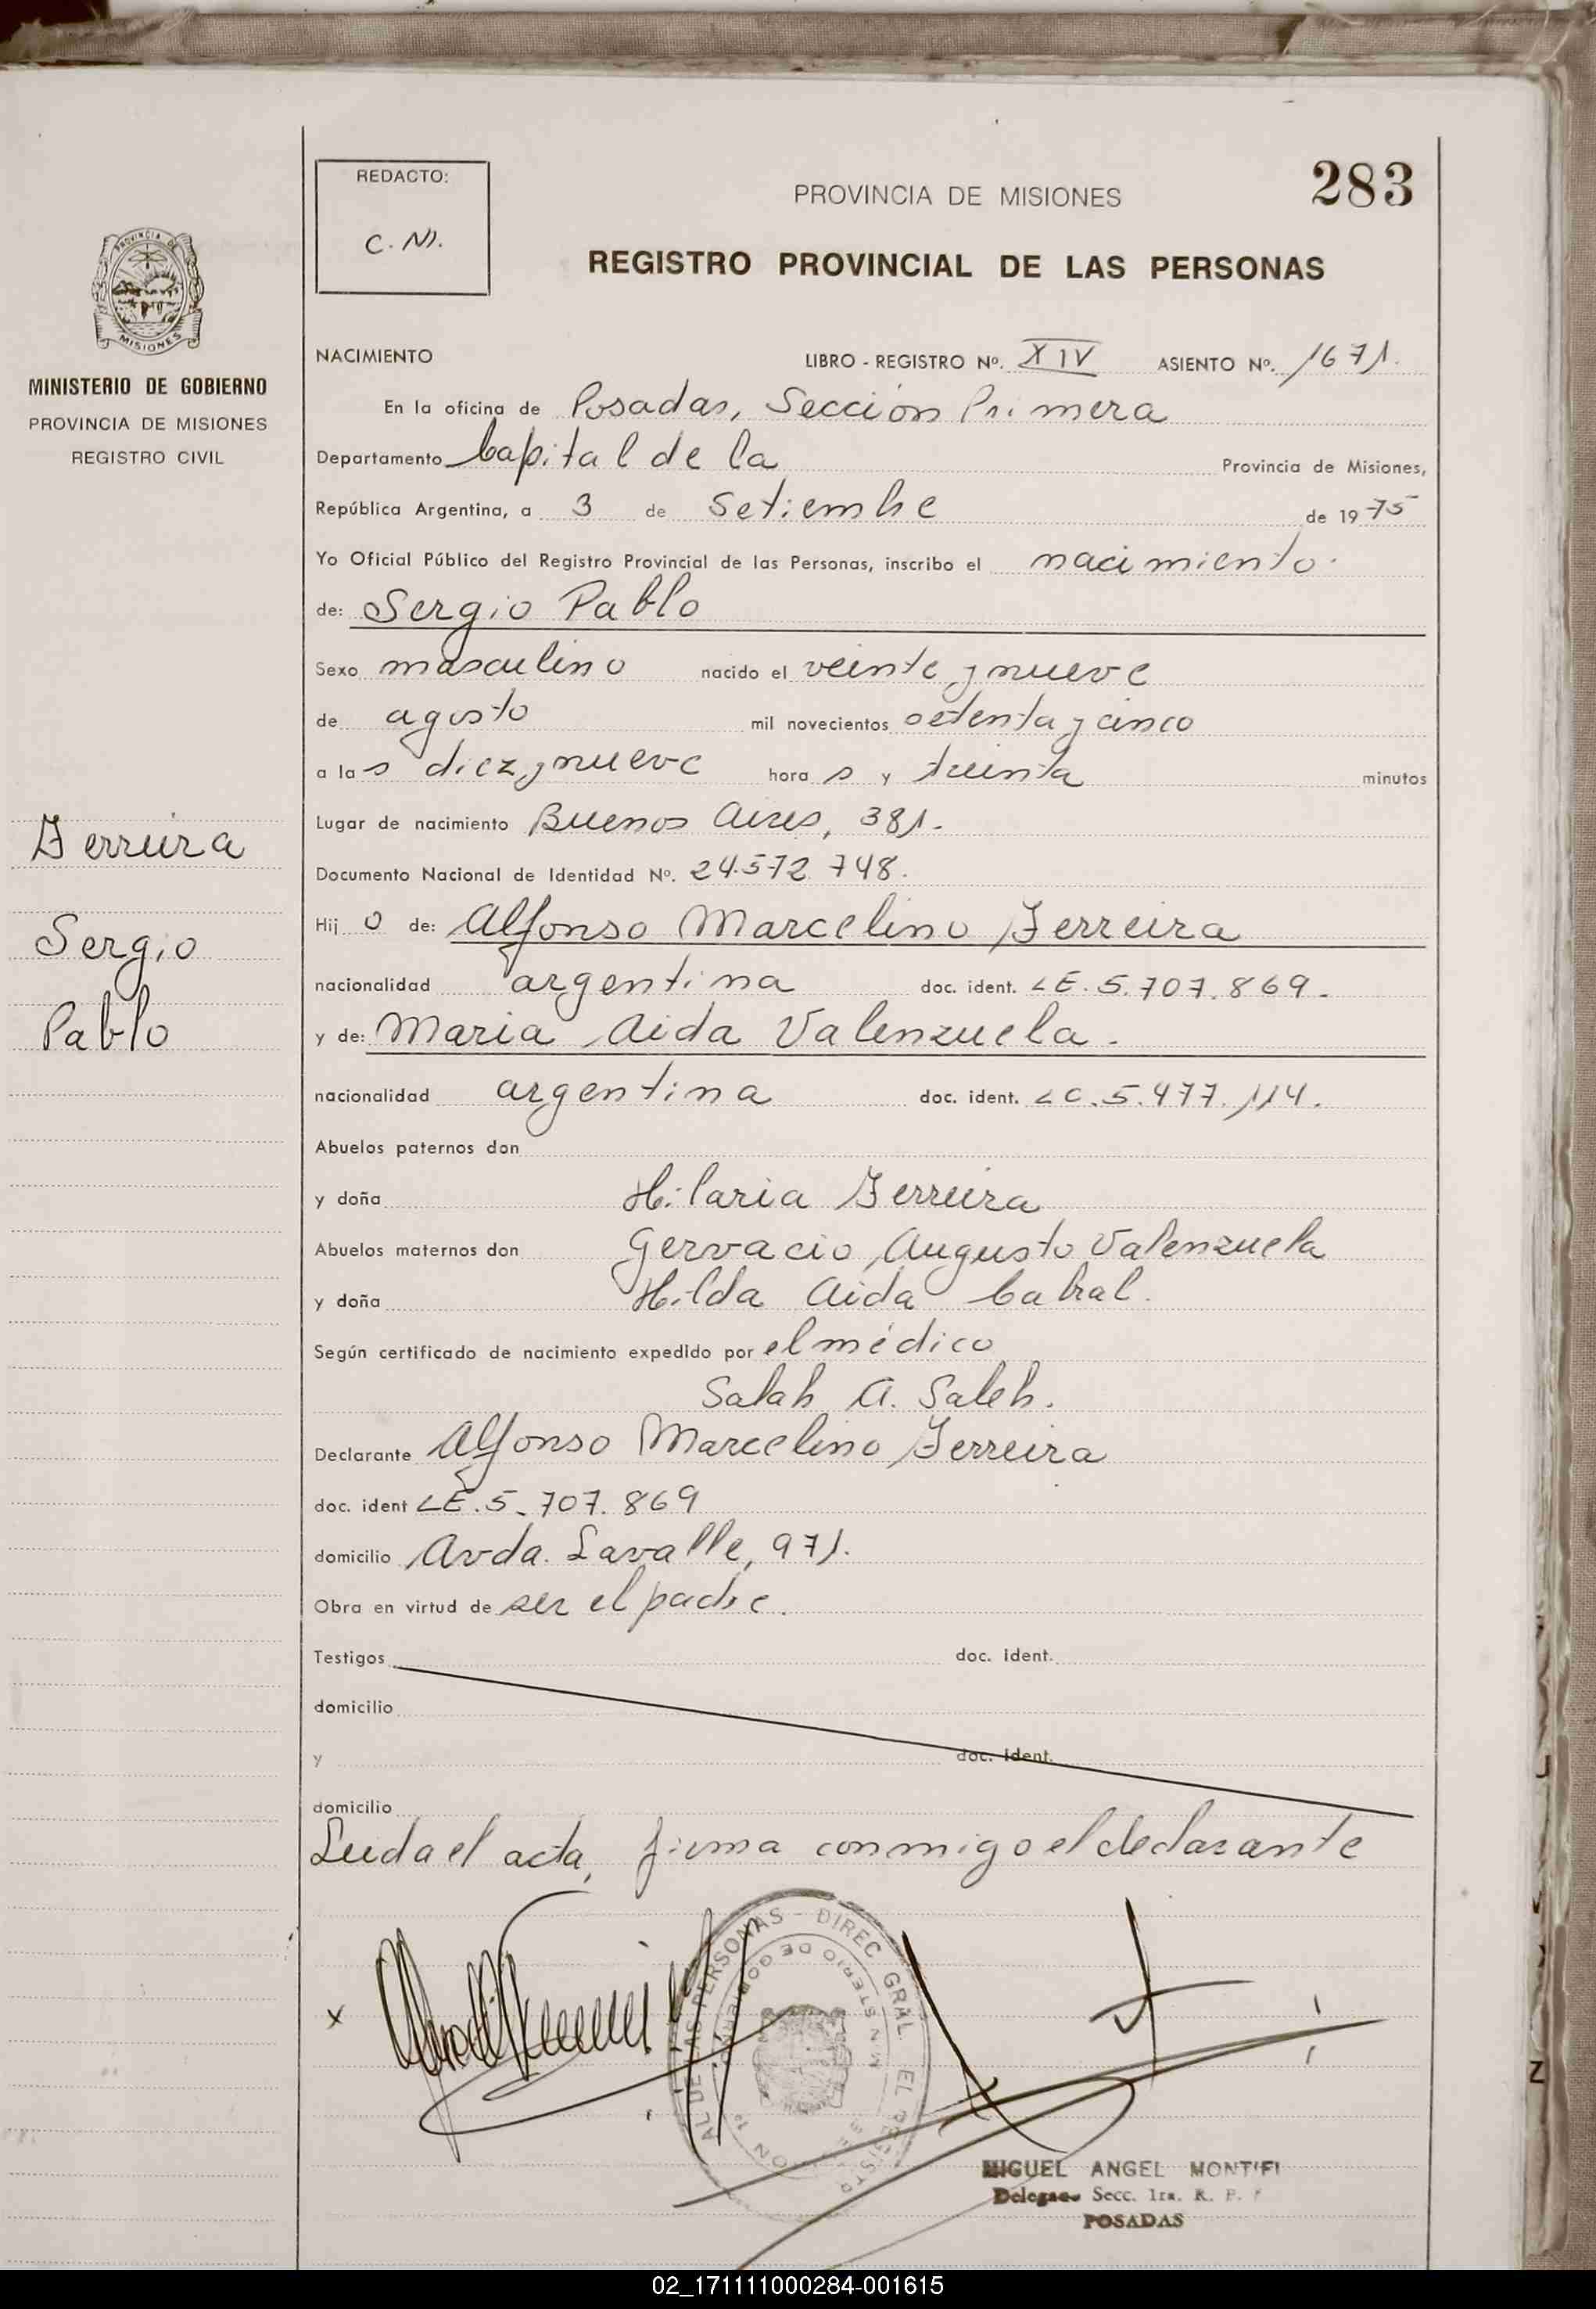 283
REDACTO:
C. N.
PROVINCIA DE MISIONES
REGISTRO PROVINCIAL DE LAS PERSONAS
PROVINCIA DE
MISIONES
MINISTERIO DE GOBIERNO
PROVINCIA DE MISIONES
REGISTRO CIVIL
NACIMIENTO LIBRO - REGISTRO Nº. XIV ASIENTO Nº. 1671.
En la oficina de Posadas, Sección Primera
Departamento Capital de la Provincia de Misiones,
República Argentina, a 3 de Setiembre de 1975
Yo Oficial Público del Registro Provincial de las Personas, inscribo el nacimiento
de: Sergio Pablo
Sexo masculino nacido el veinte y nueve
de agosto mil novecientos setenta y cinco
a las diez y nueve horas y treinta minutos
Lugar de nacimiento Buenos Aires, 381.
Documento Nacional de Identidad Nº. 24.572.748.
Hijo de: Alfonso Marcelino Ferreira
nacionalidad argentina doc. ident. LE. 5.707.869.
y de: Maria Aida Valenzuela.
nacionalidad argentina doc. ident. LC. 5.477.114.
Abuelos paternos don
y doña Hilaria Ferreira
Abuelos maternos don Gervacio Augusto Valenzuela
y doña Hilda Aida Cabral.
Según certificado de nacimiento expedido por el médico
Salah A. Saleh.
Declarante Alfonso Marcelino Ferreira
doc. ident LE. 5.707.869
domicilio Avda. Lavalle, 971.
Obra en virtud de ser el padre.
Testigos doc. ident.
domicilio
y doc. ident.
domicilio
Leida el acta, firma conmigo el declarante
Ferreira
Sergio
Pablo
x
AL DE LAS PERSONAS - DIREC. GRAL. EL REGISTR
MINISTERIO DE GOBIERNO
MIGUEL ANGEL MONTIEL
Delegado Secc. 1ra. R. P.
POSADAS
02_171111000284-001615